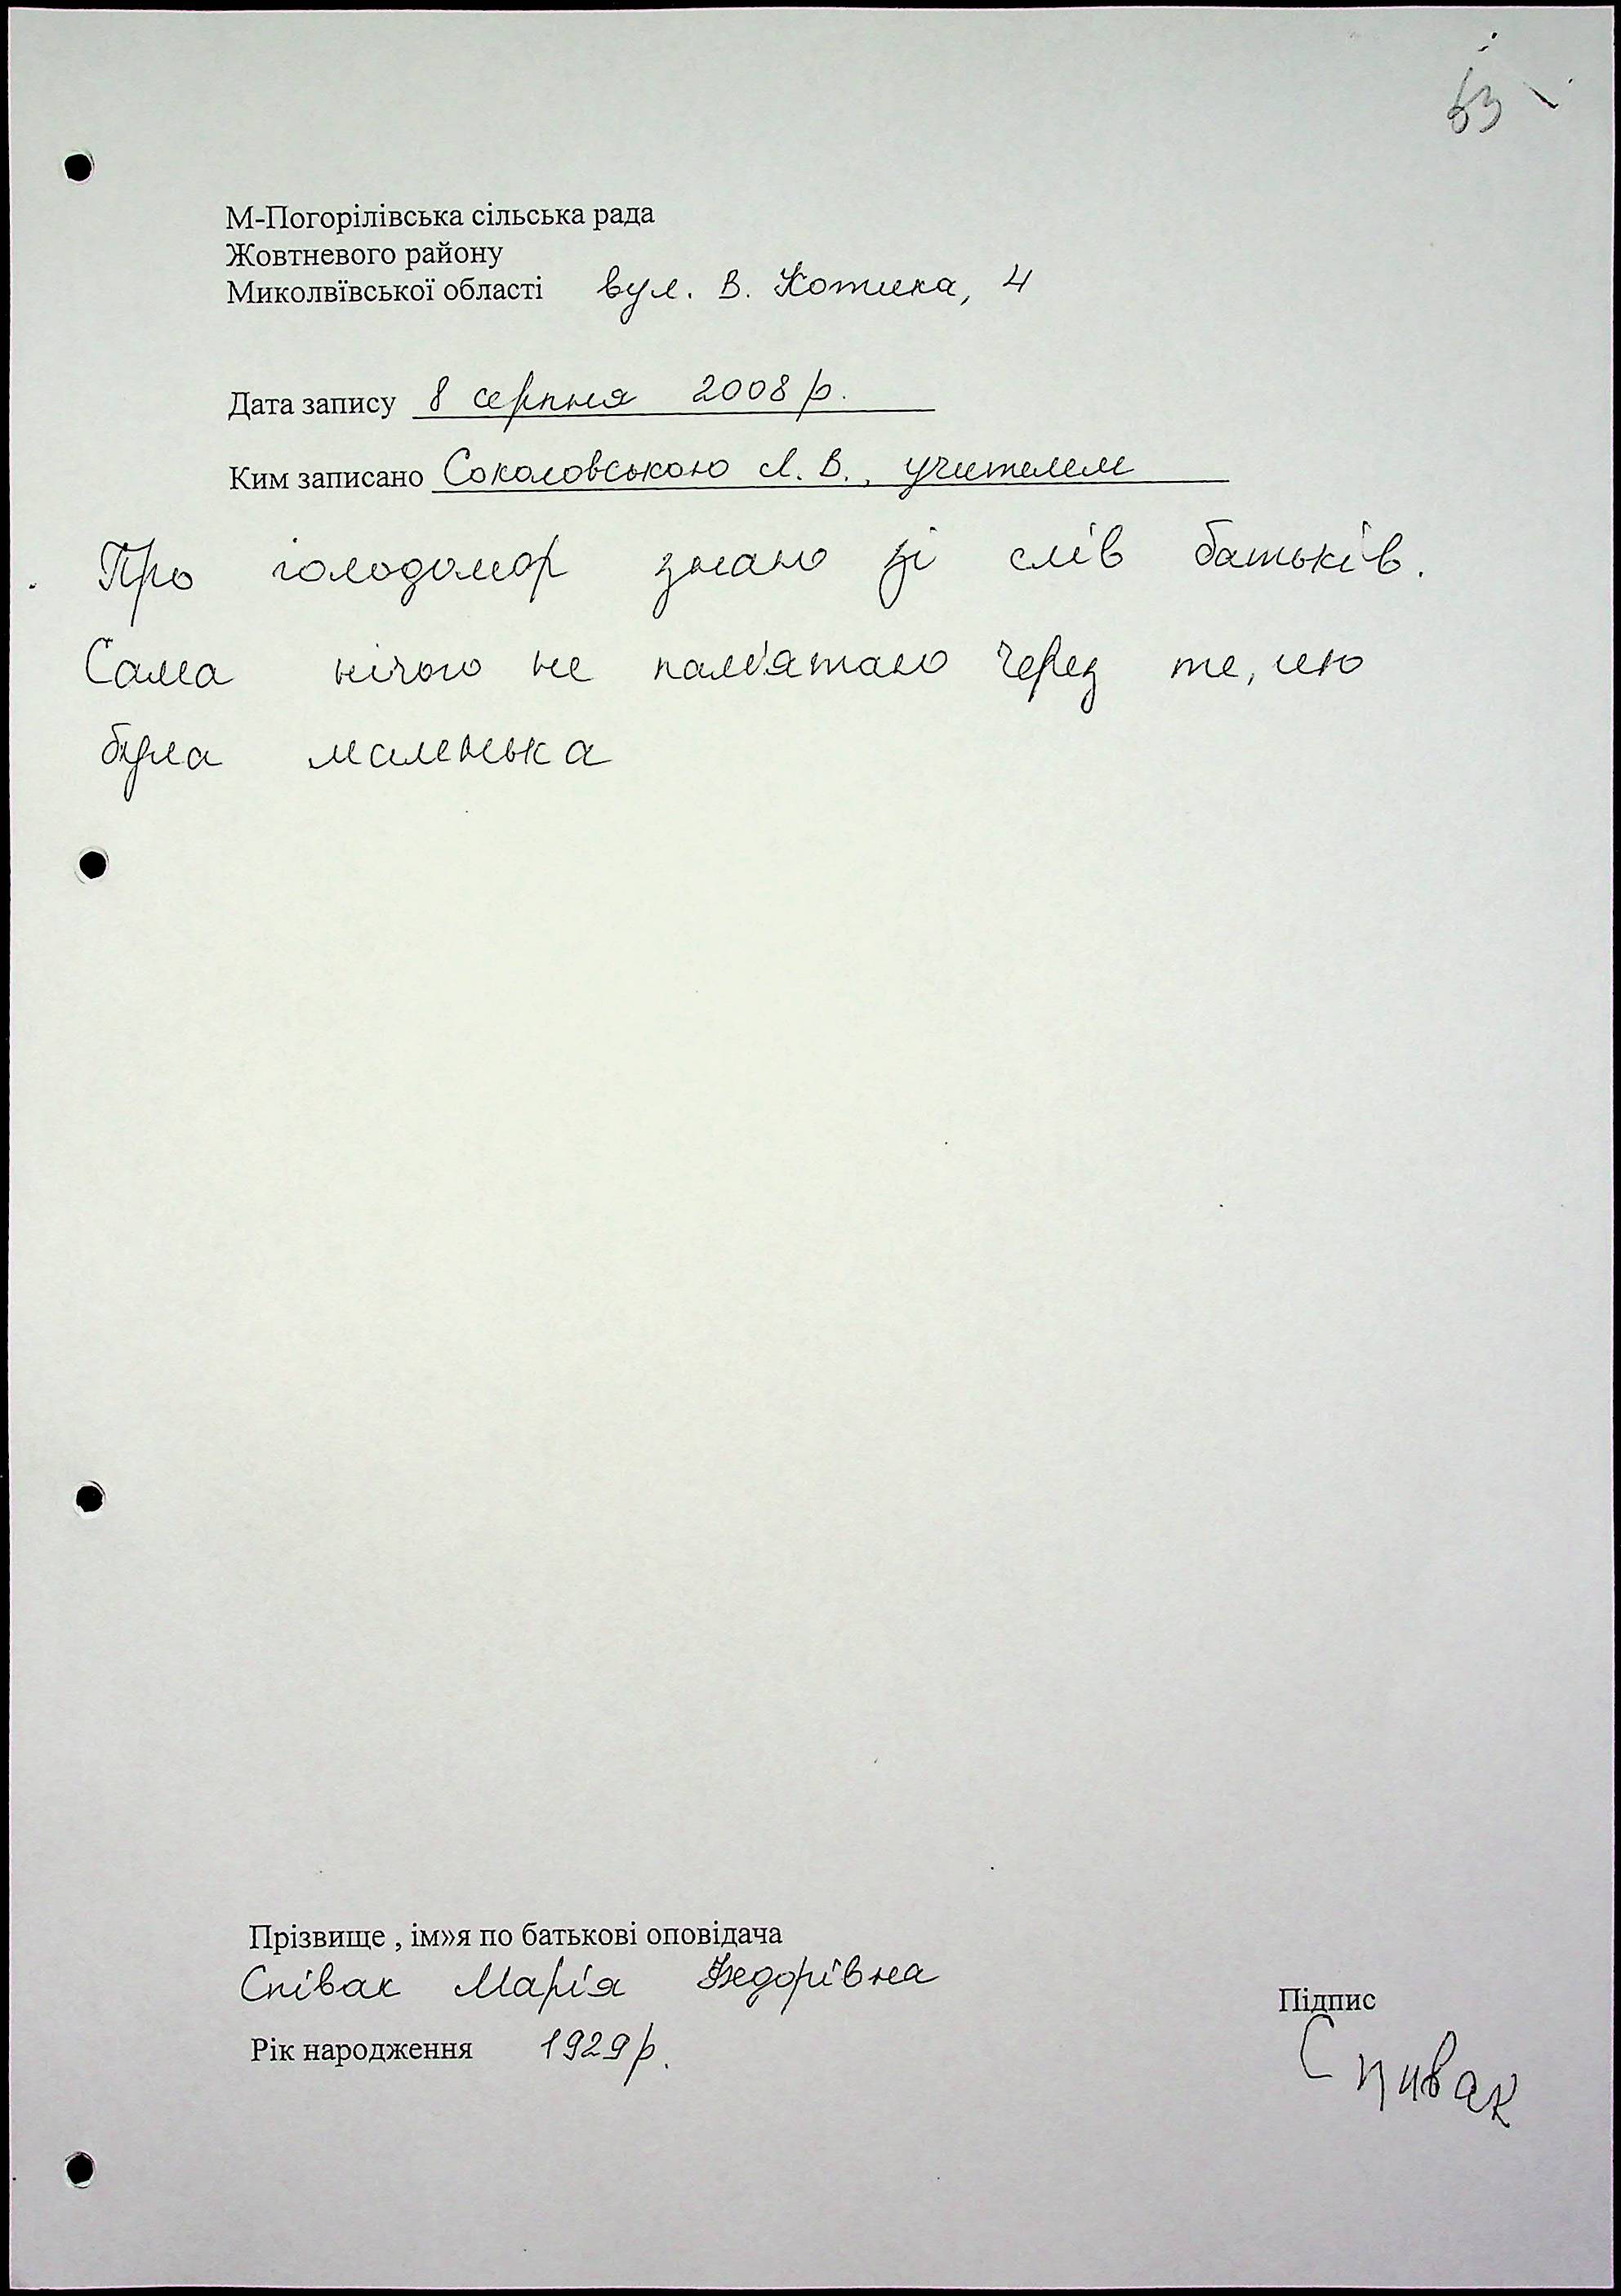 63
М-Погорілівська сільська рада
Жовтневого району
Миколвївської області вул. В. Котика, 4
Дата запису 8 серпня 2008 р.
Ким записано Соколовською Л. В., учителем
Про голодомор знаю зі слів батьків.
Сама нічого не пам'ятаю через те, що
була маленька
Прізвище , ім»я по батькові оповідача
Співак Марія Федорівна
Підпис
Рік народження 1929 р.
Спивак